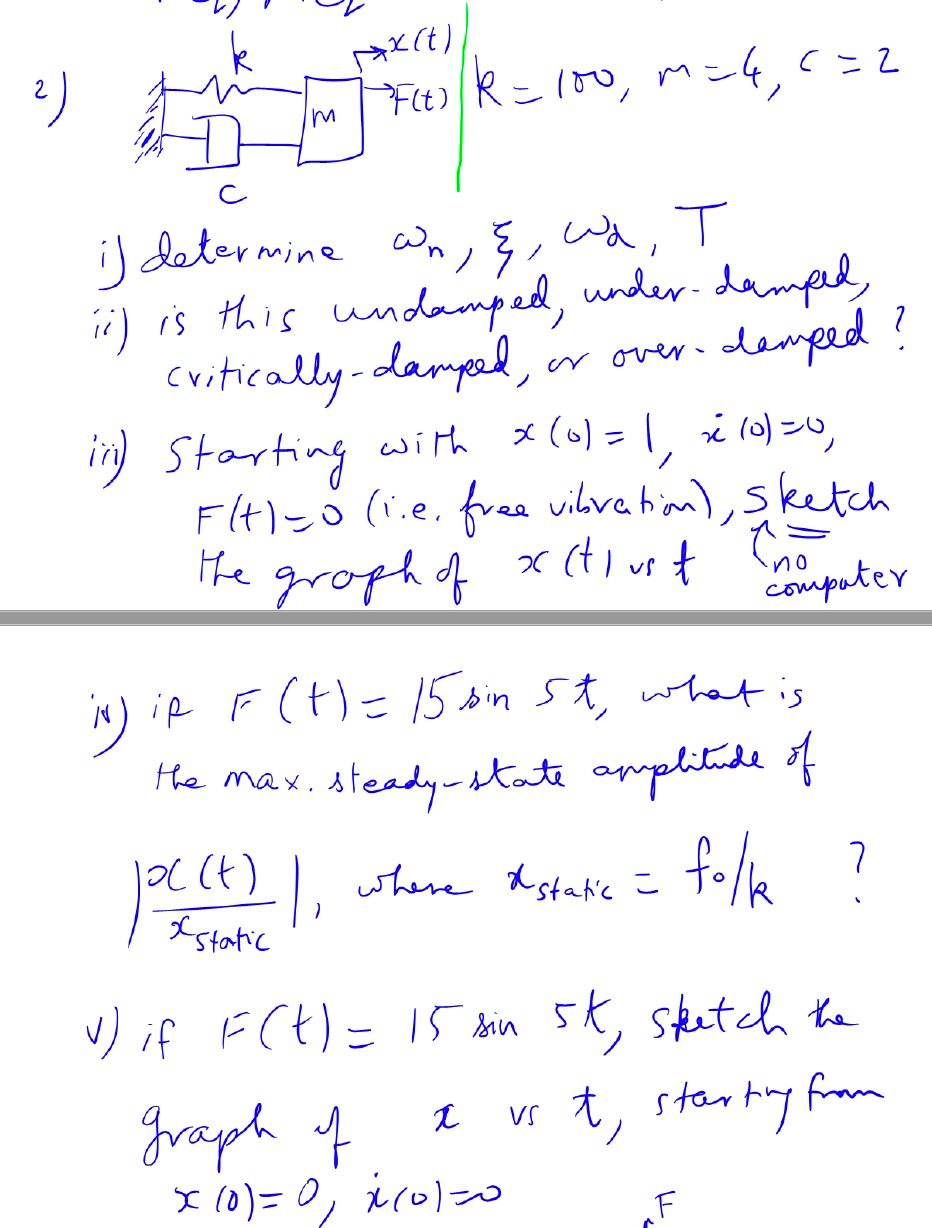 2)
k
x(t)
F(t)
m
c
k = 100, m = 4, c = 2
i) determine ωn, ξ, ωd, T
ii) is this undamped, under-damped,
critically-damped, or over-damped ?
iii) Starting with x(0) = 1, ẋ(0)=0,
F(t)=0 (i.e. free vibration), sketch
the graph of x(t) vs t
no
computer
iv) if F(t) = 15 sin 5t, what is
the max. steady-state amplitude of
|x(t)/x static|, where x static = fo/k ?
v) if F(t) = 15 sin 5t, sketch the
graph of x vs t, starting from
x(0)=0, ẋ(0)=0
F